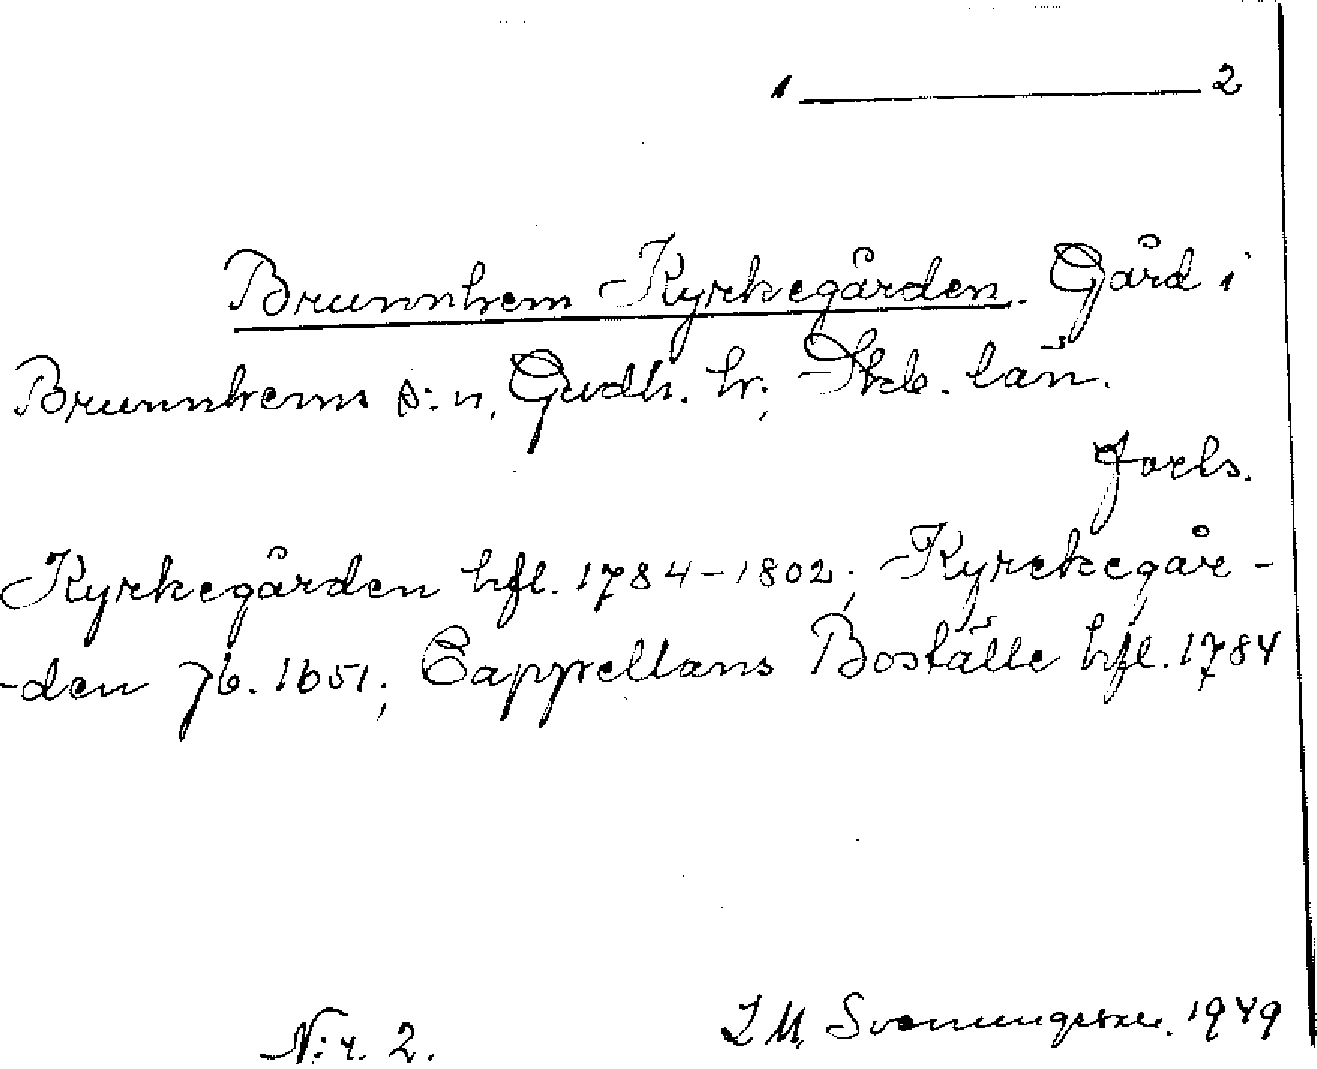 1 ———— 2
Brunnhem Kyrkegården. Gård i
Brunnhems s:n, Gudh. hr; Skb. län.
Forts.
Kyrkegården hfl. 1784-1802; Kyrkegår-
-den Jb. 1651; Cappellans Boställe hfl. 1784
N:r. 2.
I M. Svenungsson. 1949